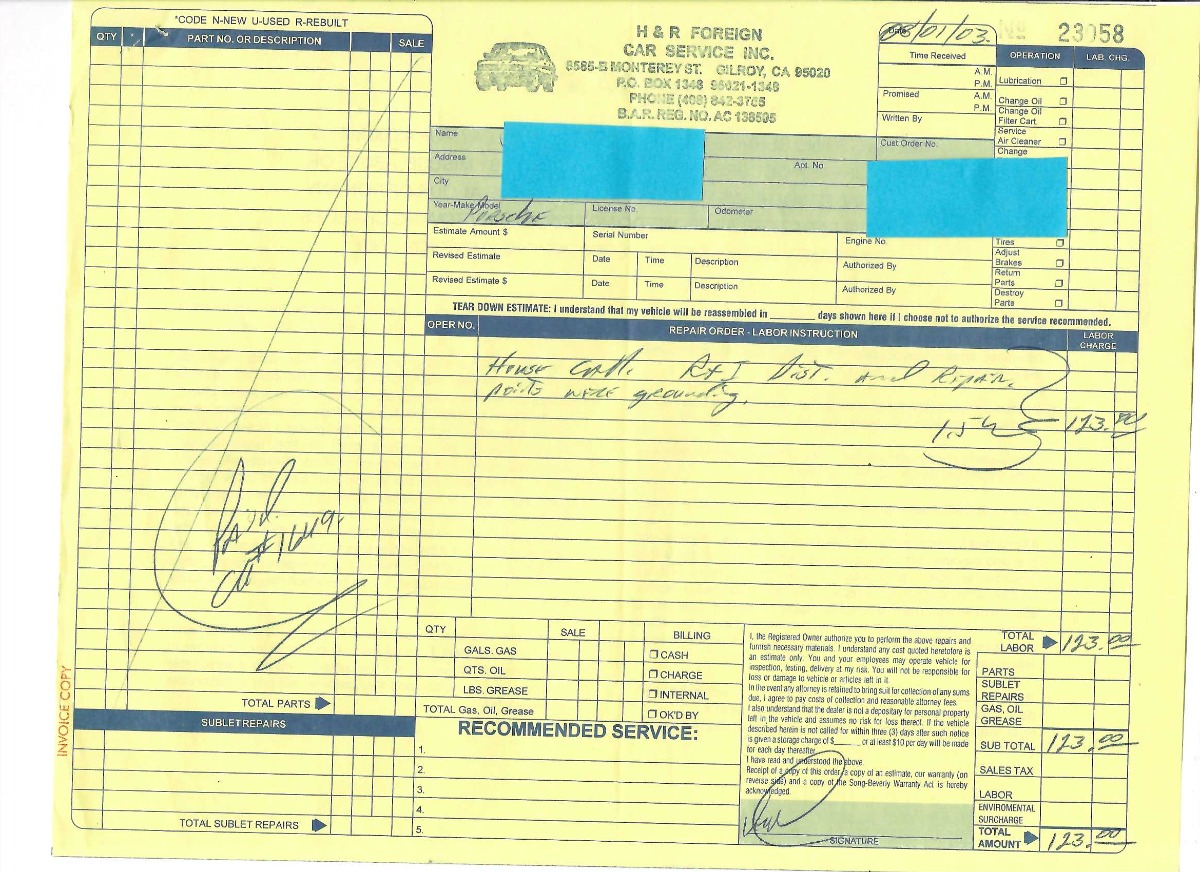 *CODE N-NEW U-USED R-REBUILT
QTY PART NO. OR DESCRIPTION SALE
H & R FOREIGN
CAR SERVICE INC.
8585-B MONTEREY ST. GILROY, CA 95020
P.O. BOX 1348 95021-1348
PHONE (408) 842-3765
B.A.R. REG. NO. AC 138595
Date 03/01/03.
23058
Time Received
A.M.
P.M.
Promised A.M.
P.M.
Written By
Cust Order No.
OPERATION LAB. CHG.
Lubrication
Change Oil
Change Oil
Filter Cart.
Service
Air Cleaner
Change
Tires
Adjust
Brakes
Return
Parts
Destroy
Parts
Name
Address Apt. No
City
Year-Make/Model Porsche License No. Odometer
Estimate Amount $ Serial Number Engine No.
Revised Estimate Date Time Description Authorized By
Revised Estimate $ Date Time Description Authorized By
TEAR DOWN ESTIMATE: I understand that my vehicle will be reassembled in ________ days shown here if I choose not to authorize the service recommended.
OPER NO. REPAIR ORDER - LABOR INSTRUCTION LABOR CHARGE
House Call. R&I Dist. and Repair.
points were grounding.
1.5 123.00
Paid
CK# 1649
INVOICE COPY
TOTAL PARTS
SUBLET REPAIRS
TOTAL SUBLET REPAIRS
QTY SALE BILLING
GALS. GAS CASH
QTS. OIL CHARGE
LBS. GREASE INTERNAL
TOTAL Gas, Oil, Grease OK'D BY
RECOMMENDED SERVICE:
1.
2.
3.
4.
5.
I, the Registered Owner authorize you to perform the above repairs and
furnish necessary materials. I understand any cost quoted heretofore is
an estimate only. You and your employees may operate vehicle for
inspection, testing, delivery at my risk. You will not be responsible for
loss or damage to vehicle or articles left in it.
In the event any attorney is retained to bring suit for collection of any sums
due, I agree to pay costs of collection and reasonable attorney fees.
I also understand that the dealer is not a depositary for personal property
left in the vehicle and assumes no risk for loss thereof. If the vehicle
described herein is not called for within three (3) days after such notice
is given a storage charge of $______ or at least $10 per day will be made
for each day thereafter.
I have read and understood the above.
Receipt of a copy of this order, a copy of an estimate, our warranty (on
reverse side) and a copy of the Song-Beverly Warranty Act is hereby
acknowledged.
SIGNATURE
TOTAL LABOR 123.00
PARTS
SUBLET REPAIRS
GAS, OIL GREASE
SUB TOTAL 123.00
SALES TAX
LABOR
ENVIROMENTAL SURCHARGE
TOTAL AMOUNT 123.00